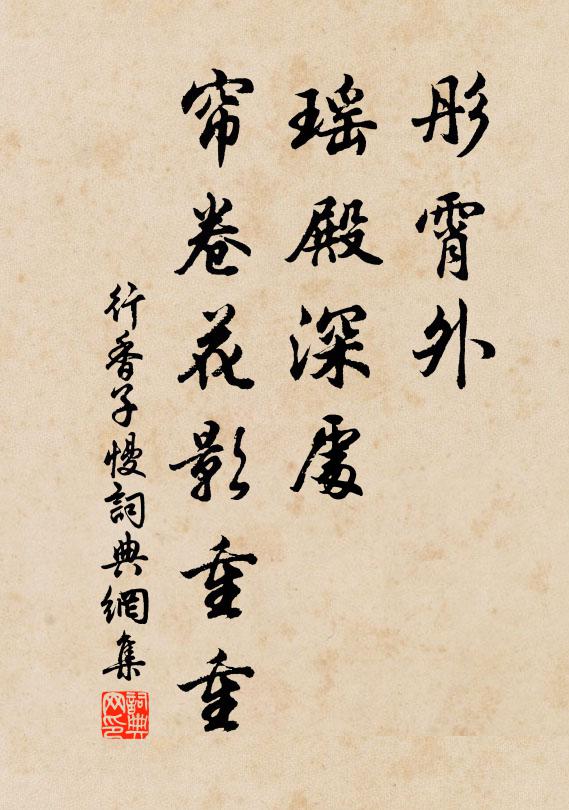 彤霄外
瑤殿深處
帘卷花影重重
行香子慢詞典網集
詞典网印